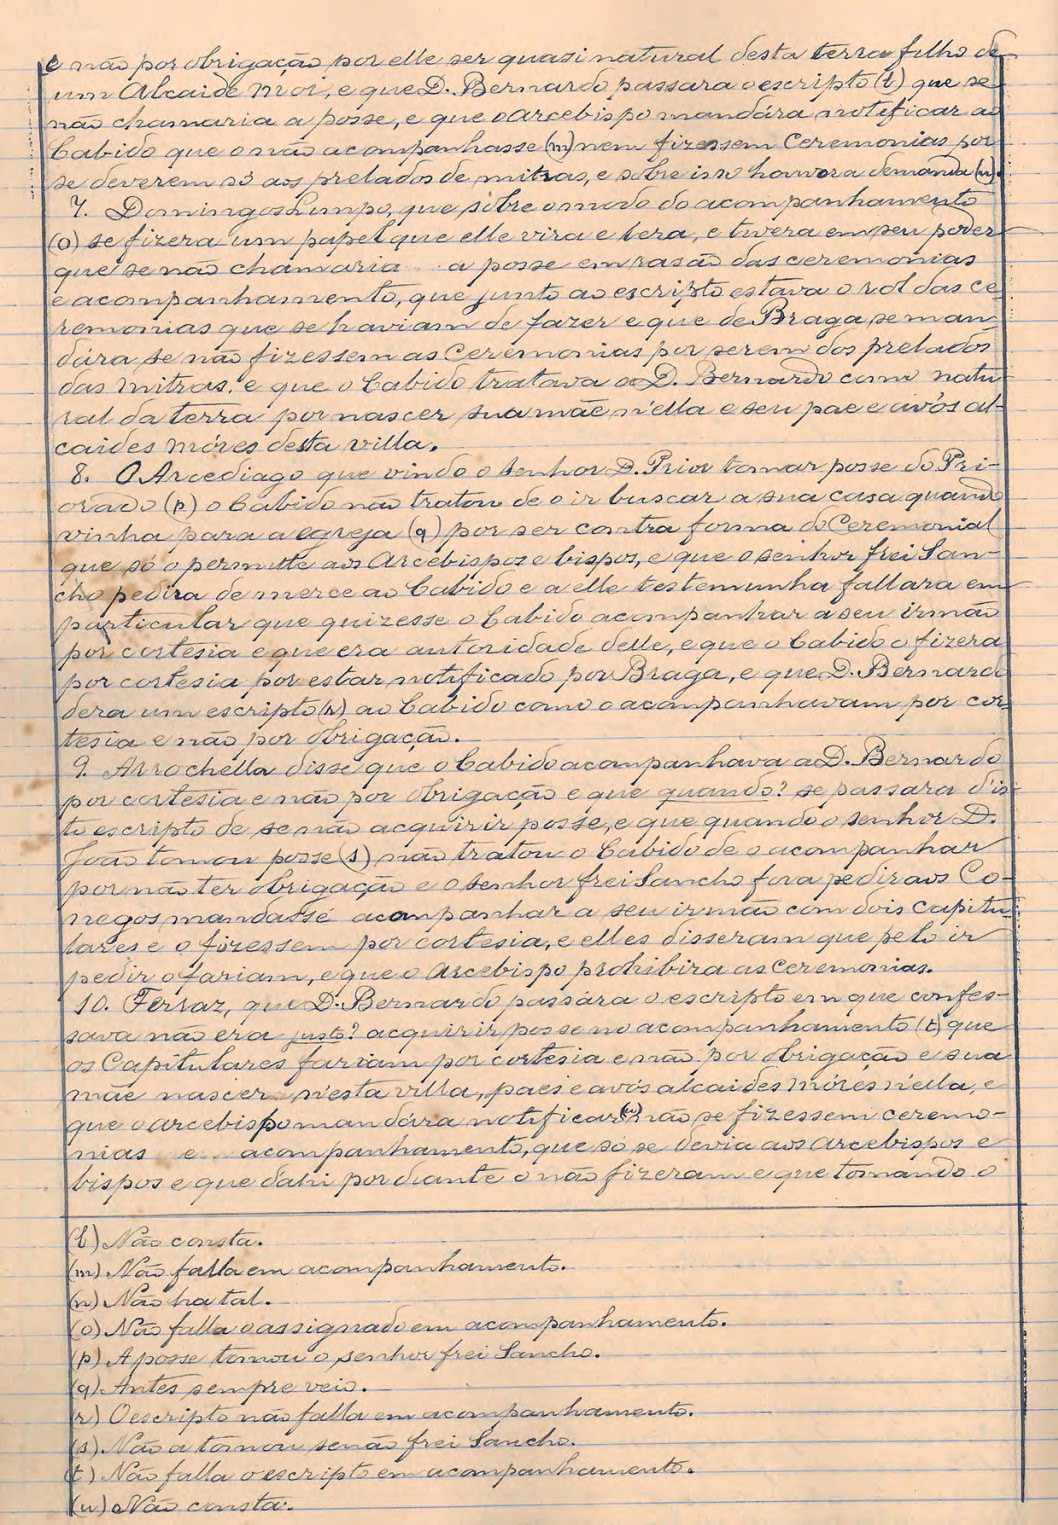 e não por obrigação por elle ser quasi natural desta terra filho de
um Alcaide Mór, e que D. Bernardo passara o escripto (l) que se
não chamaria a posse, e que o arcebispo mandára notificar ao
Cabido que o não acompanhasse (m) nem fizessem Ceremonias por
se deverem só aos prelados de mitras, e sobre isso houvera demanda (n).
7. Domingos Limpo, que sobre o modo do acompanhamento
(o) se fizera um papel que elle vira e lera, e tivera em seu poder
que se não chamaria a posse em rasão das ceremonias
e acompanhamento, que junto ao escripto estava o rol das ce
remonias que se haviam de fazer e que de Braga se man-
dára se não fizessem as Ceremonias por serem dos prelados
das mitras. e que o Cabido tratava ao D. Bernardo como natu
ral da terra por nascer sua mãe n'ella e seu pae e avós al-
caides móres desta villa.
8. O Arcediago que vindo o senhor D. Prior tomar posse do Pri-
orado (p) o Cabido não tratou de o ir buscar a sua casa quando
vinha para a egreja (q) por ser contra forma do Ceremonial
que só o permitte aos Arcebispos e bispos, e que o senhor frei San-
cho pedira de merce ao Cabido e a elle testemunha fallara em
particular que quizesse o Cabido acompanhar a seu irmão
por cortesia e que era autoridade delle, e que o Cabido o fizera
por cortesia por estar notificado por Braga, e que D. Bernardo
dera um escripto (r) ao Cabido como o acompanhavam por cor-
tesia e não por obrigação.
9. Arrochella disse que o Cabido acompanhava a D. Bernardo
por cortesia e não por obrigação e que quando? se passara dis-
to escripto de se não acquirir posse, e que quando o senhor D.
João tomou posse (s) não tratou o Cabido de o acompanhar
por não ter obrigação e o senhor frei Sancho fora pedir aos Co-
negos mandasse acompanhar a seu irmão com dois capitu-
lares e o fizessem por cortesia, e elles disseram que pelo ir
pedir o fariam, e que o arcebispo prohibira as ceremonias.
10. Ferraz, que D. Bernardo passára o escripto em que confes-
sava não era justo? acquirir posse no acompanhamento (t) que
os Capitulares fariam por cortesia e não por obrigação e sua
mãe nascer n'esta villa, paes e avós alcaides móres n'ella, e
que o arcebispo mandára notificar (u) não se fizessem ceremo-
nias e acompanhamento, que só se devia aos arcebispos e
bispos e que dahi por diante o não fizeram e que tomando o
(l) Não consta.
(m) Não falla em acompanhamento.
(n) Não ha tal.
(o) Não falla o assignado em acompanhamento.
(p) A posse tomou o senhor frei Sancho.
(q) Antes sempre veio.
(r) O escripto não falla em acompanhamento.
(s) Não a tomou senão frei Sancho.
(t) Não falla o escripto em acompanhamento.
(u) Não consta.